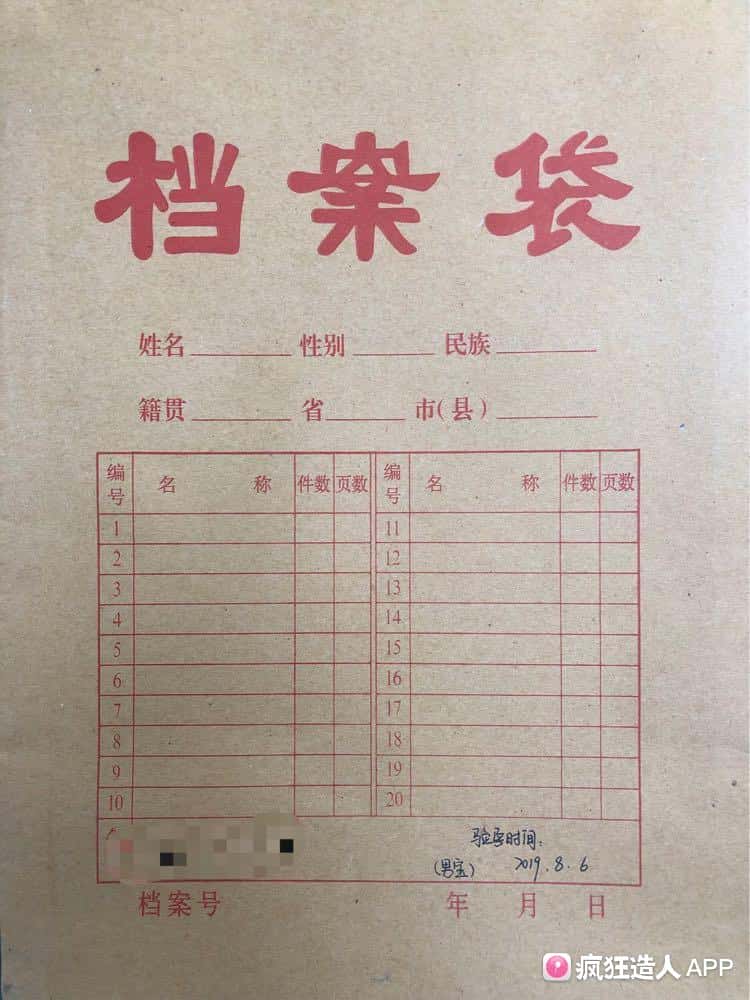 档案袋
姓名 性别 民族
籍贯 省 市(县)
编号 名称 件数 页数 编号 名称 件数 页数
1 11
2 12
3 13
4 14
5 15
6 16
7 17
8 18
9 19
10 20
验孕时间:
(男宝) 2019.8.6
档案号 年 月 日
疯狂造人 APP